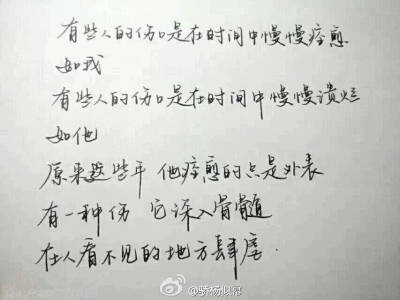 有些人的伤口是在时间中慢慢痊愈
如我
有些人的伤口是在时间中慢慢溃烂
如他
原来这些年 他痊愈的只是外表
有一种伤 它深入骨髓
在人看不见的地方肆虐.
@骄杨似君